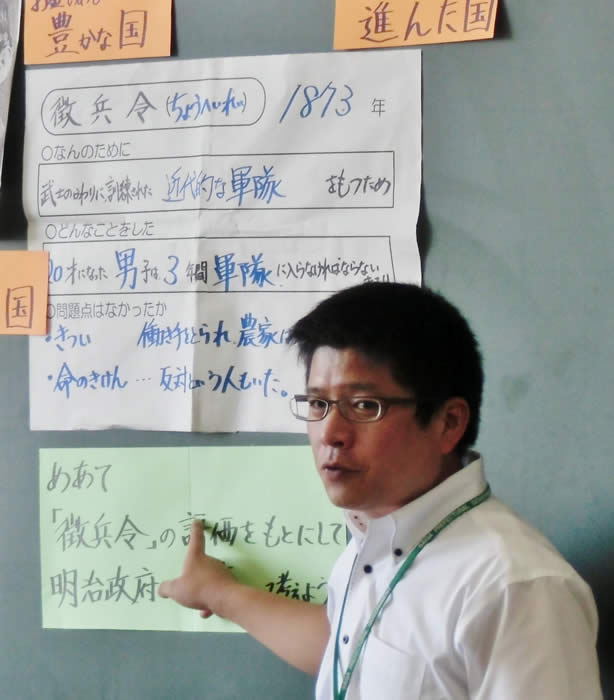 豊かな国
進んだ国
徴兵令(ちょうへいれい) 1873年
○なんのために
武士のかわりに訓練された 近代的な軍隊 をもつため
○どんなことをした
20才になった男子は3年間軍隊に入らなければならない
国
○問題点はなかったか
・きつい 働き手をとられ、農家は
・命のきけん…反対という人もいた。
めあて
「徴兵令」の評価をもとにして
明治政府 考えよう